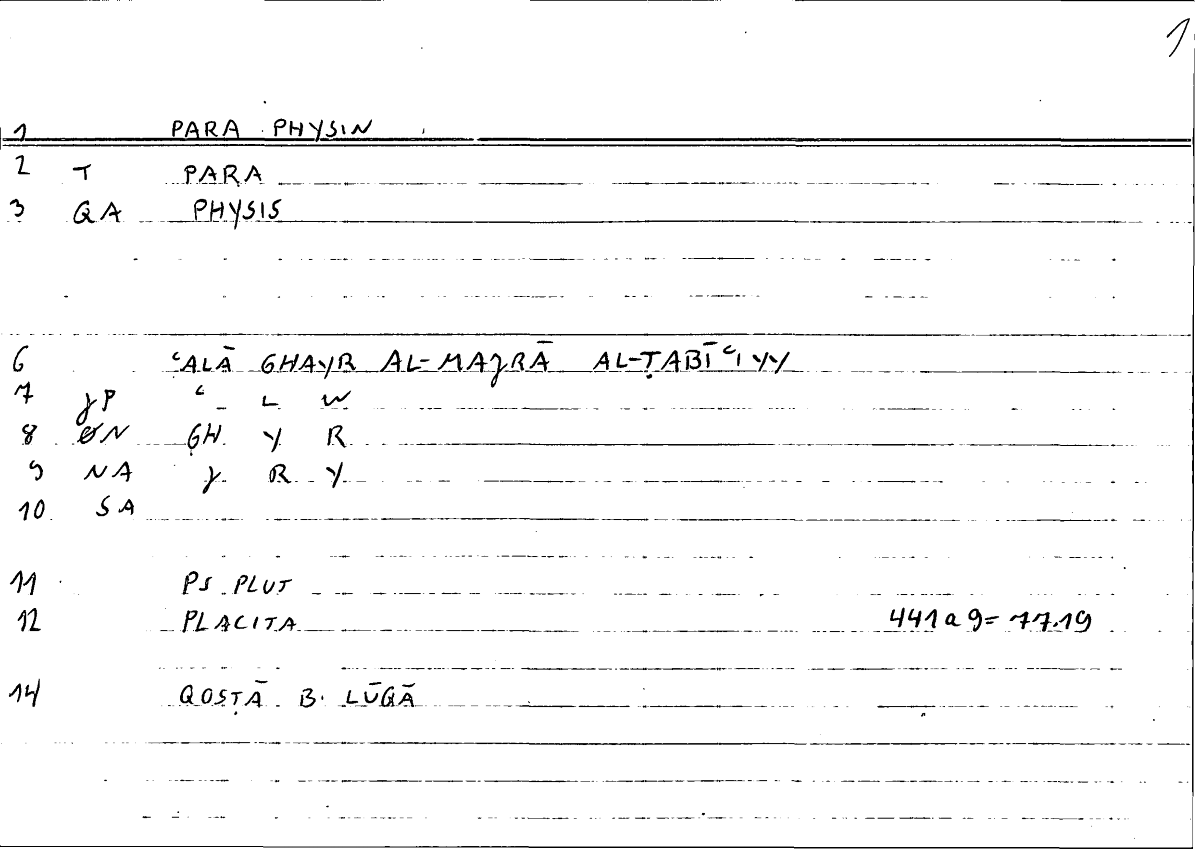 1
1 PARA PHYSIN
2 T PARA
3 QA PHYSIS
6 ʿALĀ GHAYR AL-MAJRĀ AL-ṬABĪʿIYY
7 JP ʿ L W
8 ØN GH Y R
9 NA J R Y
10 SA
11 PS PLUT
12 PLACITA 441a9= 77.19
14 QOSṬĀ B. LŪQĀ